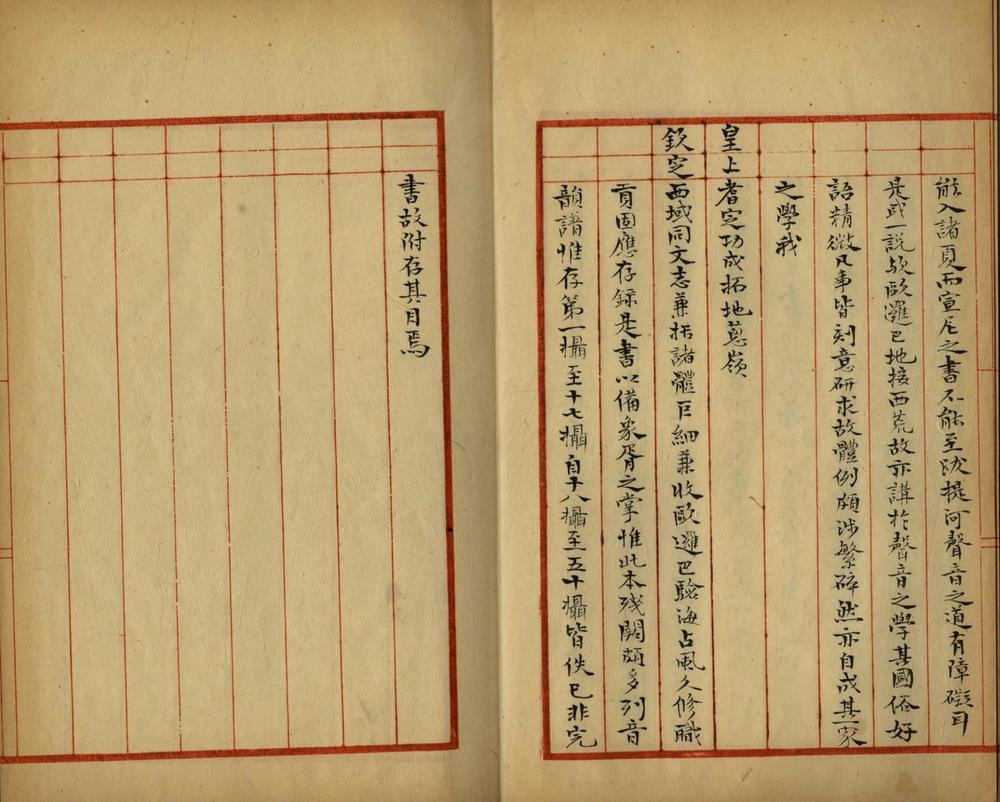 能入諸夏而宣尼之書不能至跋提河聲音之道有障礙耳
是或一說歟歐邏巴地接西荒故亦講於聲音之學其國俗好
語精微凡事皆刻意研求故體例頗涉繁碎然亦自成其一家
之學我
皇上耆定功成拓地蔥嶺
欽定西域同文志兼括諸體巨細兼收歐邏巴驗海占風久修職
貢固應存錄是書以備象胥之掌惟此本殘闕頗多列音
韻譜惟存第一攝至十七攝自十八攝至五十攝皆佚已非完
書故附存其目焉